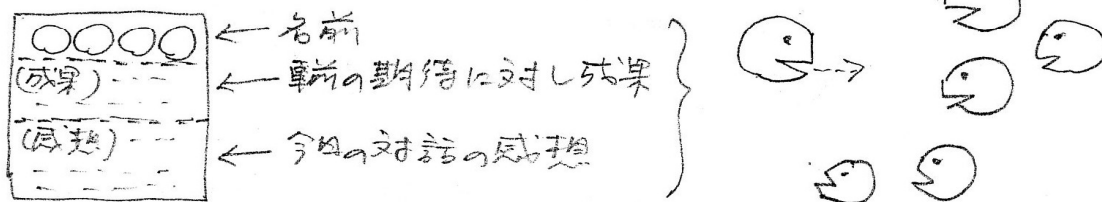 〇〇〇〇 ← 名前
(成果) ← 事前の期待に対し成果
(感想) ← 今日の対話の感想